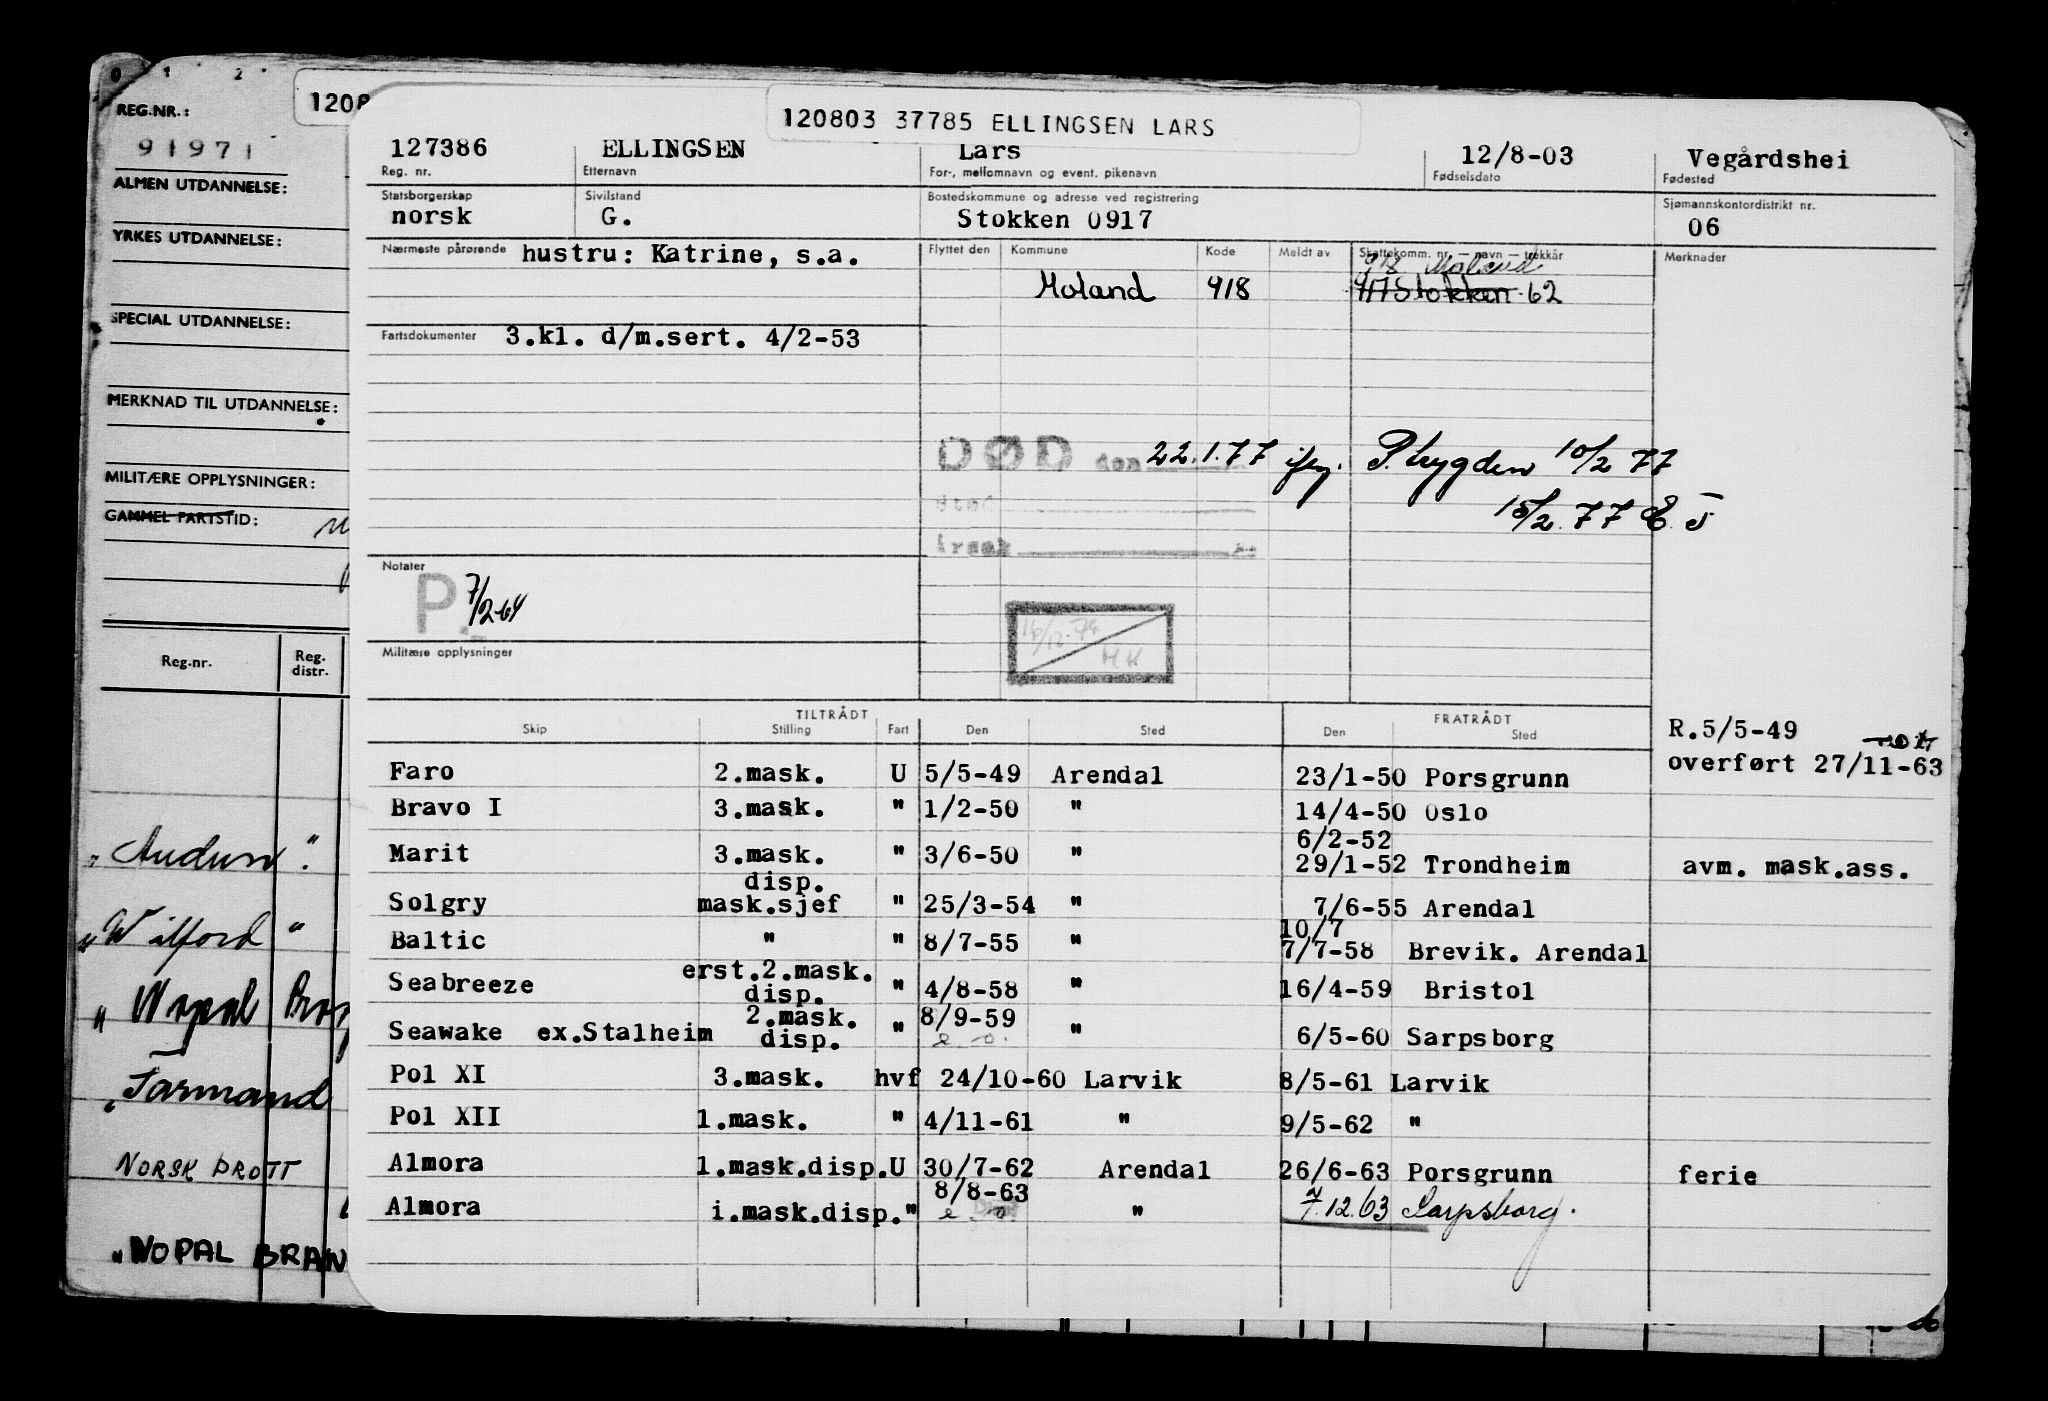 0 1 2
REG.NR.:
91971
ALMEN UTDANNELSE:
YRKES UTDANNELSE:
SPECIAL UTDANNELSE:
MERKNAD TIL UTDANNELSE:
MILITÆRE OPPLYSNINGER:
GAMMEL FARTSTID:
Reg.nr. Reg. distr.
" Audun "
" Wilford "
" Nopal
" Tarmand
NORSK DROTT
" NOPAL BRAN
1208
120803 37785 ELLINGSEN LARS
127386 ELLINGSEN Lars 12/8-03 Vegårdshei
Reg. nr. Etternavn For-, mellomnavn og event. pikenavn Fødselsdato Fødested
Statsborgerskap Sivilstand Bostedskommune og adresse ved registrering Sjømannskontordistrikt nr.
norsk G. Stokken 0917 06
Nærmeste pårørende hustru: Katrine, s.a. Flyttet den Kommune Kode Meldt av Skattekomm. nr. — navn — trekkår Merknader
918 Moland
Moland 918 917 Stokken 62
Fartsdokumenter 3.kl. d/m.sert. 4/2-53
DØD den 22.1.77 ifg. P. trygden 10/2 77
Sted 15/2.77 E J
Årsak
Notater
P. 7/2-64
16/12.74
HK
Militære opplysninger
TILTRÅDT FRATRÅDT
Skip Stilling Fart Den Sted Den Sted
R.5/5-49
overført 27/11-63
Faro 2.mask. U 5/5-49 Arendal 23/1-50 Porsgrunn
Bravo I 3.mask. " 1/2-50 " 14/4-50 Oslo
6/2-52
Marit 3.mask. " 3/6-50 " 29/1-52 Trondheim avm. mask.ass.
disp.
Solgry mask.sjef " 25/3-54 " 7/6-55 Arendal
10/7
Baltic " " 8/7-55 " 7/7-58 Brevik. Arendal
erst.2.mask.
Seabreeze disp. " 4/8-58 " 16/4-59 Bristol
2.mask. 8/9-59
Seawake ex.Stalheim disp. " e. o. " 6/5-60 Sarpsborg
Pol XI 3.mask. hvf 24/10-60 Larvik 8/5-61 Larvik
Pol XII 1.mask. " 4/11-61 " 9/5-62 "
Almora 1.mask.disp. U 30/7-62 Arendal 26/6-63 Porsgrunn ferie
8/8-63
Almora i.mask.disp. " e. o. " 7.12.63 Sarpsborg.